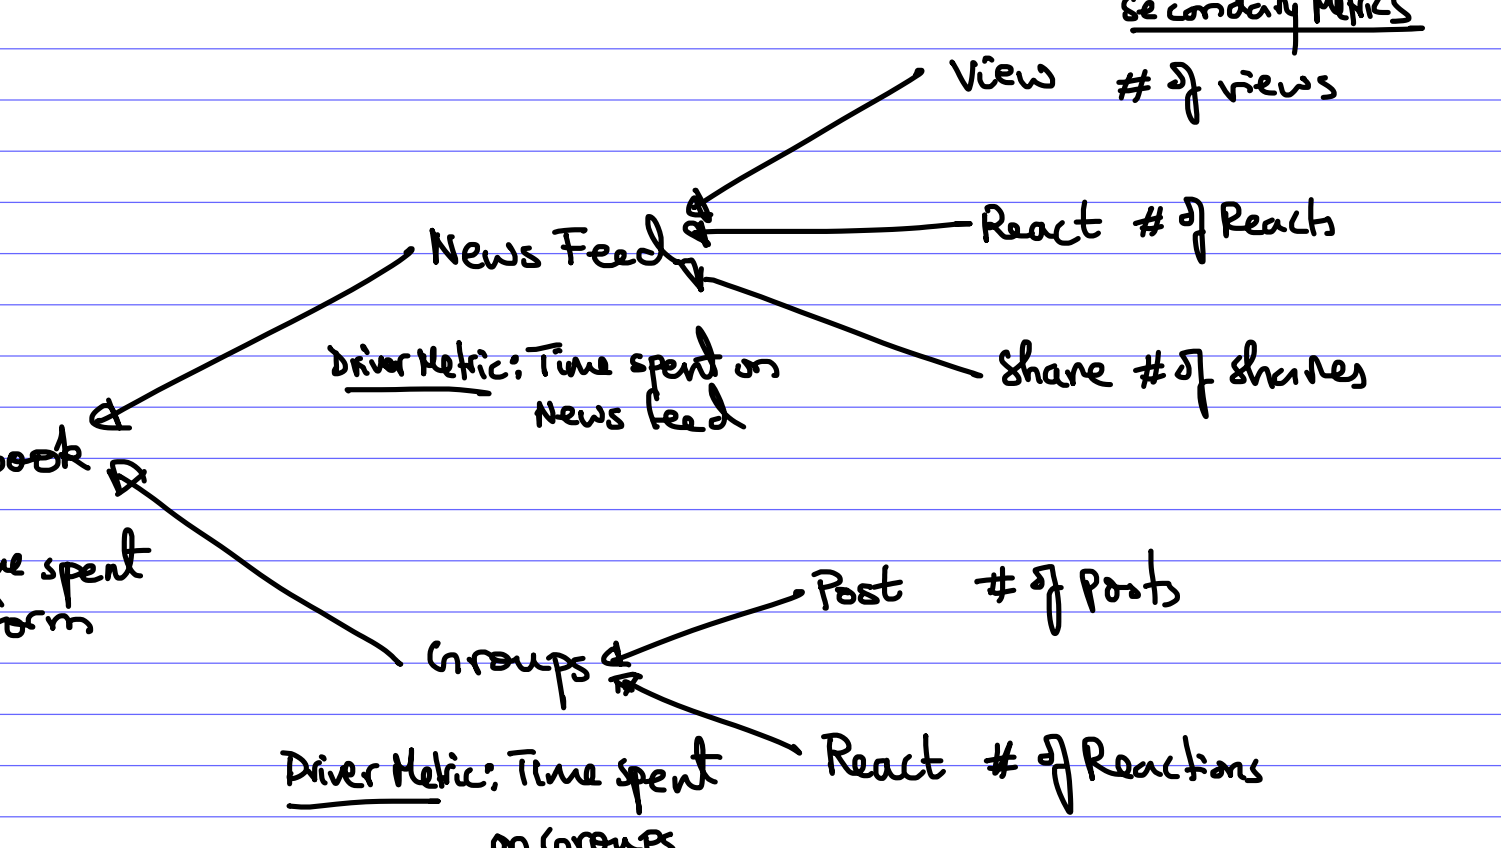 secondary Metrics
View # of views
React # of Reacts
News Feed
Driver Metric: Time spent on
News feed
Share # of shares
ook
e spent
orm
Post # of posts
Groups
React # of Reactions
Driver Metric: Time spent
on Groups